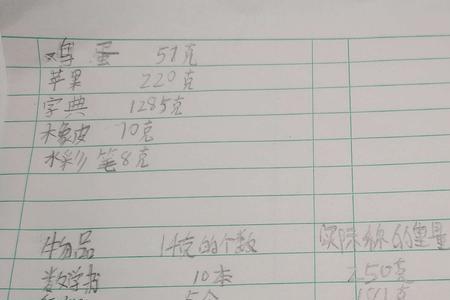 鸡蛋 51克
苹果 220克
字典 1285克
木象皮 10克
水彩笔8克
物品 1千克的个数 实际称的重量
数学书 10本 50克
5个